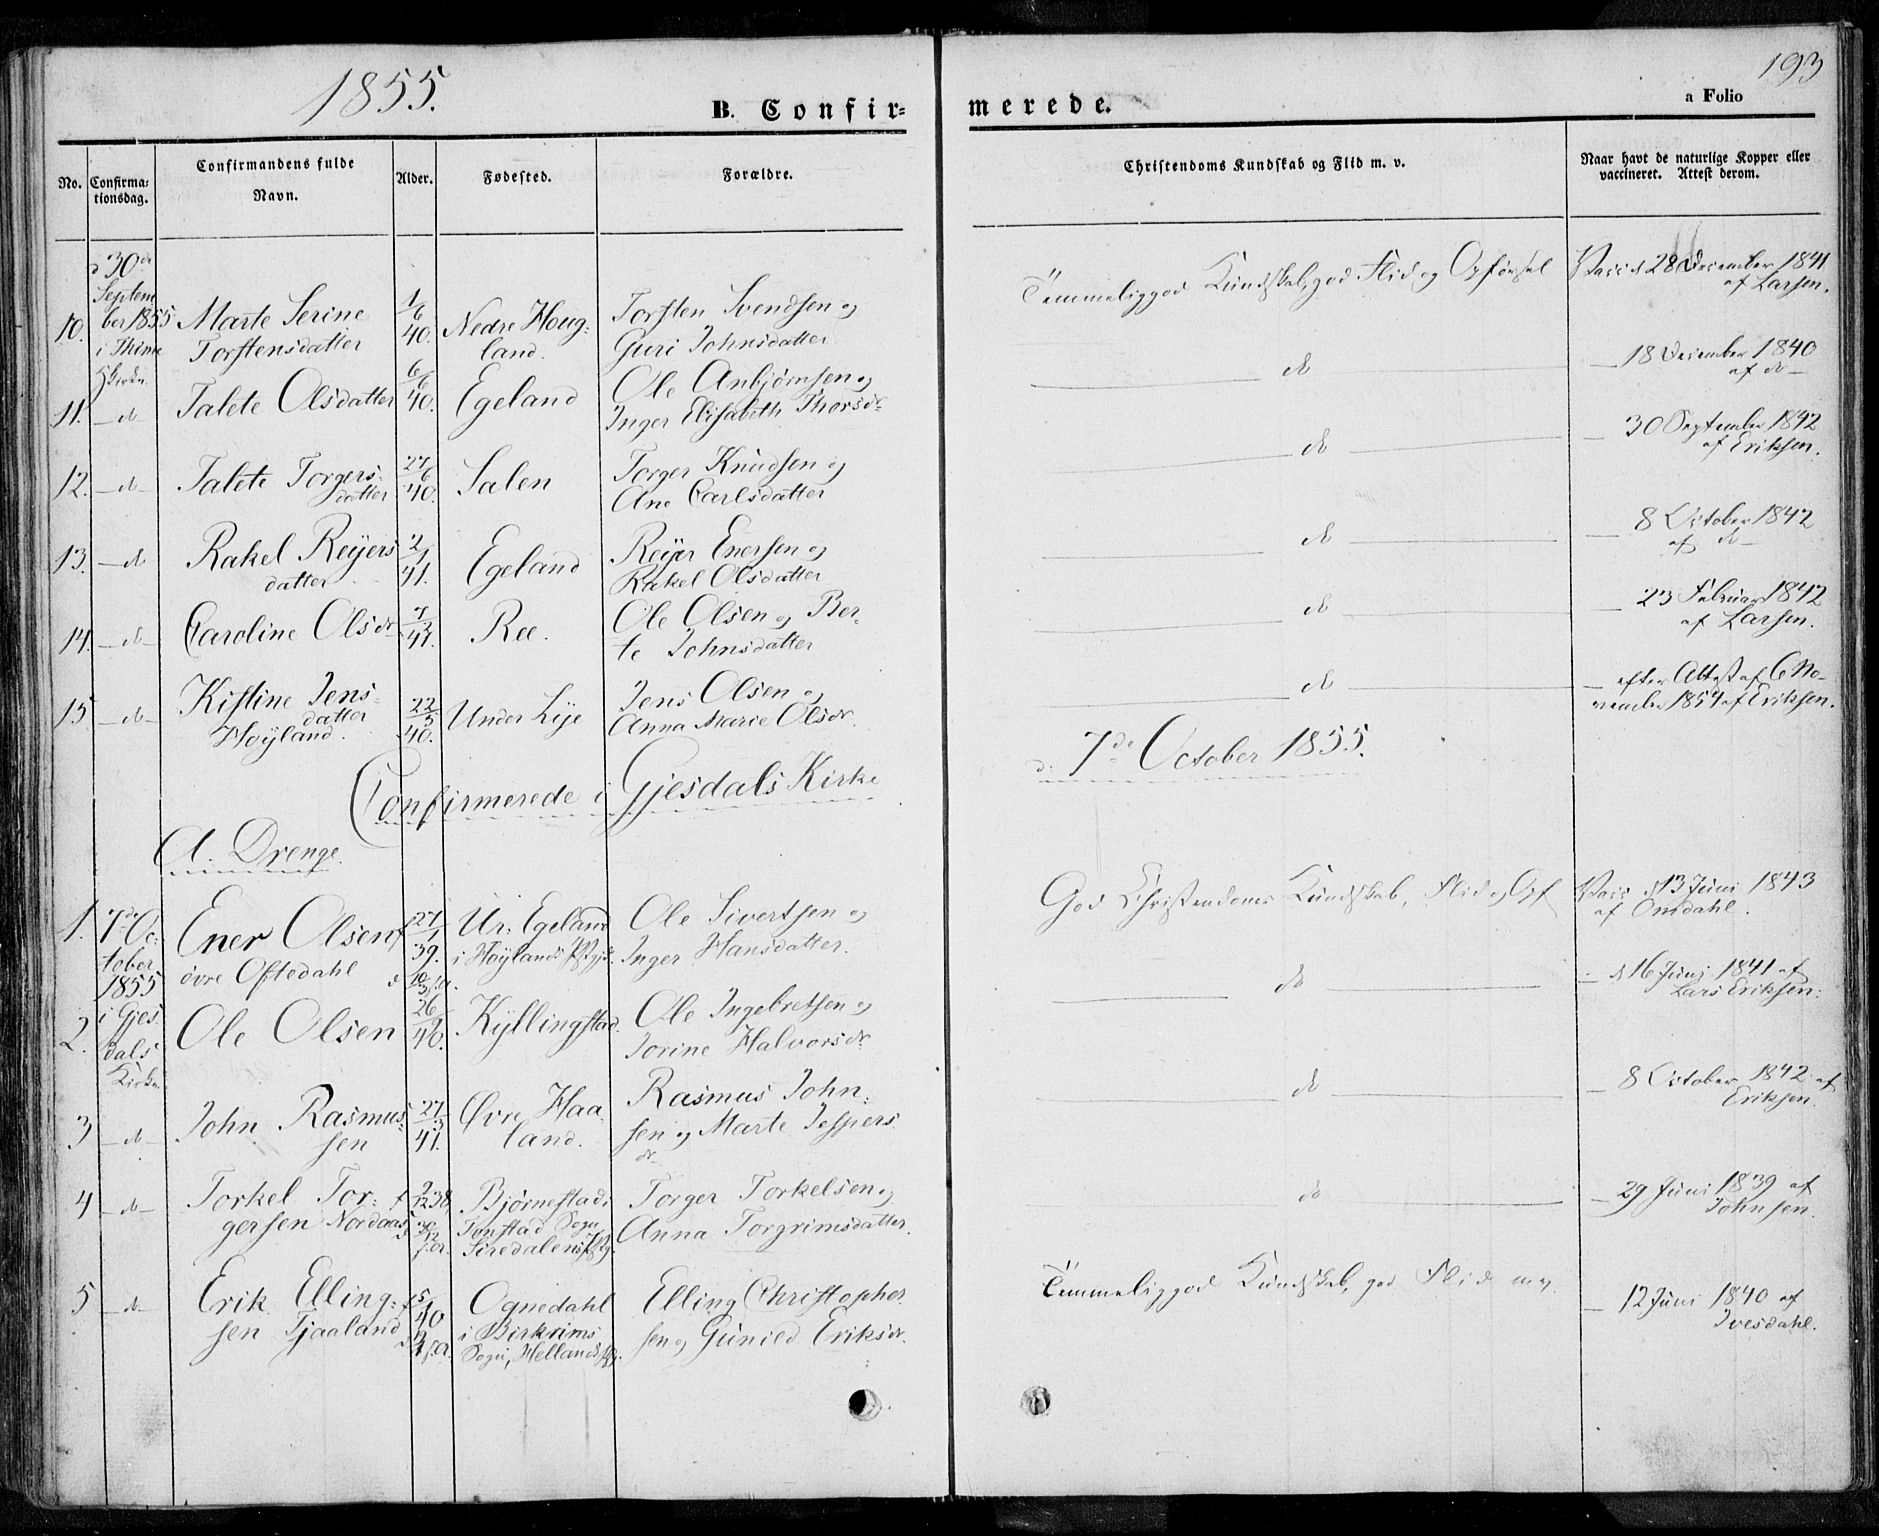 1855.
193
B. Confir=
merede.
a Folio
No.
Confirma=
tionsdag.
Confirmandens fulde
Navn.
Alder.
Fødested.
Forældre.
Christendoms Kundskab og Flid m. v.
Naar havt de naturlige Kopper eller
vaccineret. Attest derom.
10.
d 30de
Septem
ber 1855
i Thime
Kirke.
Marte Serine
Torstensdatter
1/6
40.
Nedre Houg=
land.
Torsten Svendsen og
Guri Johnsdatter
Temmelig god Kundskab, god Flid og Opførsel
Vacc. d 28 December 1841
af Larsen.
11. -d-
Talete Olsdatter
6/6
40.
Egeland
Ole Anbjørnsen og
Inger Elisabeth Thorsdr
do
18 December 1840
af do
12. -d-
Talete Torgers=
datter
27/6
40.
Salen
Torger Knudsen og
Ane Carlsdatter
do
30 September 1842
af Eriksen.
13. -d-
Rakel Reijers
datter
2/1
41.
Egeland
Reijer Enersen og
Rakel Olsdatter
do
8 October 1842
af do
14. -d-
Caroline Olsdr
7/2
41.
Ree.
Ole Olsen og Ber=
te Johnsdatter
do
23 Februar 1842
af Larsen.
15 -d-
Kistine Jens=
datter
Høyland.
22/5
40.
Under Lije
Jens Olsen og
Anna Marie Olsdr.
do
efter Attest af 6 No-
vember 1854 af Eriksen.
Confirmerede i Gjesdals Kirke
d. 7de October 1855.
A. Drenge.
1.
7de Oc=
tober
1855
i Gjes=
dals
Kirke
Ener Olsen
øvre Oftedahl
27/1
39.
Ur. Egeland
i Høylands Pstgj.
Ole Sivertsen og
Inger Hansdatter.
God Christendoms Kundskab, Flid og Opf
Vacc. d 13 Juni 1843
af Omdahl.
2.
Ole Olsen
26/9
40.
Kyllingstad.
Ole Ingebretsen og
Jorine Halvorsdr
do
- d 16 Juni 1841 af
Lars Eriksen.
3 -d-
John Rasmus=
sen
27/3
41.
Øvre Haa=
land.
Rasmus John=
sen og Marte Jespers=
dr
do
8 October 1842 af
Eriksen.
4 -d-
Torkel Tor=
gersen Nordaas
2/12 38
Bjørnestad i
Tonstad Sogn
Siredalens Pg.
Torger Torkelsen og
Anna Torgrimsdatter.
do
29 Juni 1839 af
Johnsen.
5 -d-
Erik Elling=
sen Tjaaland
40
Ognedahl
i Birkrims
Sogn, Hellands Pg.
Elling Christopher=
sen og Gunied Eriksdr.
Temmelig god Kundskab, god Flid m v.
12 Juni 1840 af
Ivesdahl.